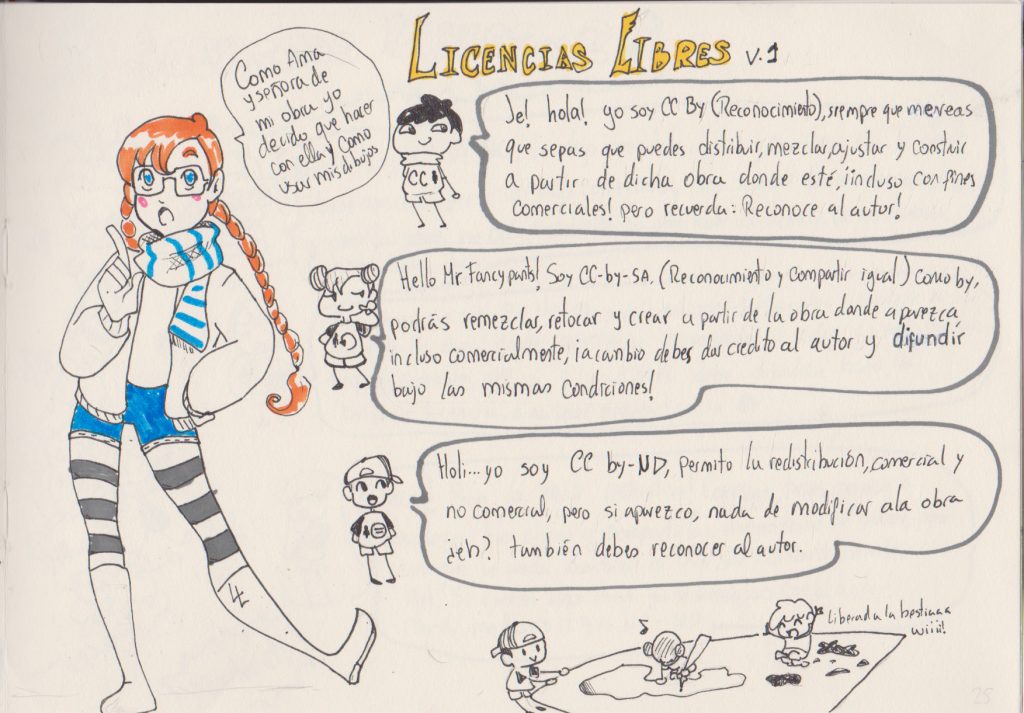 LICENCIAS LIBRES V.1
Como Ama
y señora de
mi obra yo
decido que hacer
con ella y como
usar mis dibujos
Je! hola! yo soy CC By (Reconocimiento), siempre que me veas
que sepas que puedes distribuir, mezclar, ajustar y construir
a partir de dicha obra donde esté, ¡incluso con fines
comerciales! pero recuerda: Reconoce al autor!
CC
Hello Mr. Fancy pants! Soy CC-by-SA. (Reconocimiento y compartir igual) como by,
podrás remezclar, retocar y crear a partir de la obra donde aparezca
incluso comercialmente, ¡a cambio debes dar credito al autor y difundir
bajo las mismas condiciones!
Holi... yo soy CC by-ND, permito la redistribución, comercial y
no comercial, pero si aparezco, nada de modificar a la obra
¿eh? también debes reconocer al autor.
Liberad a la bestiaaa
wiiii!
25